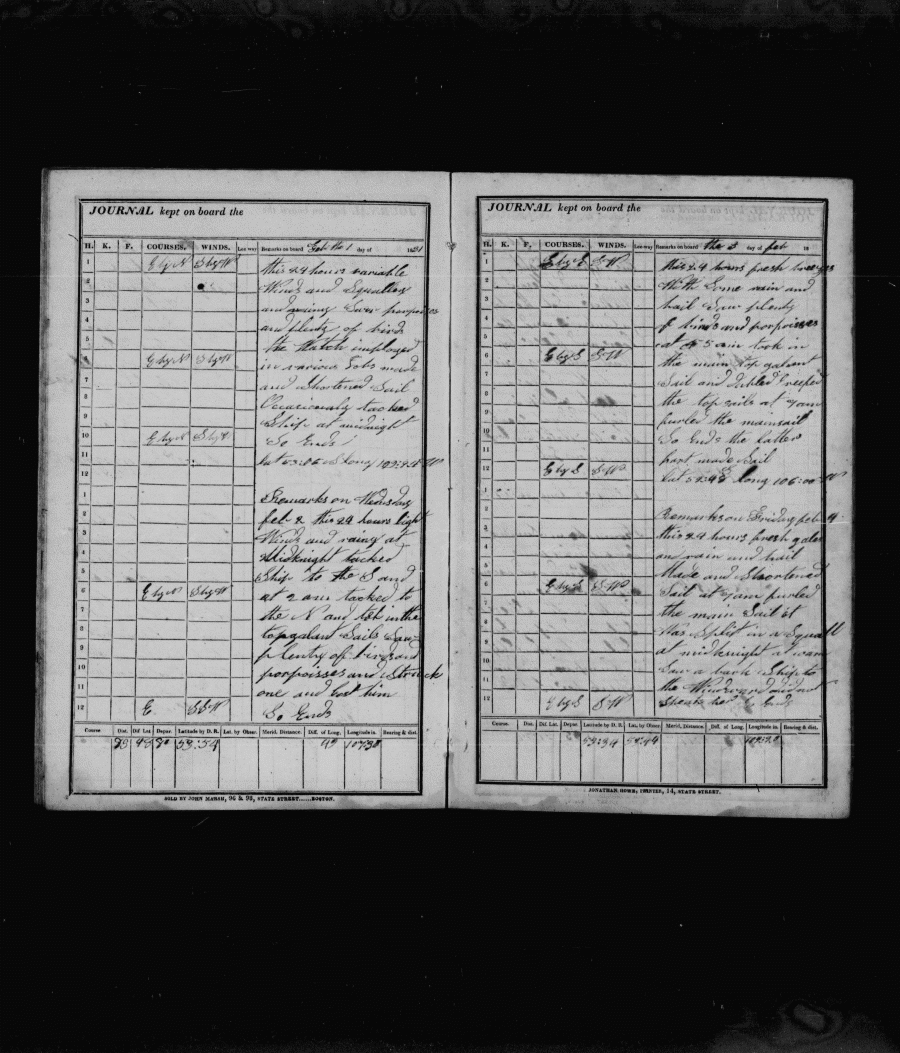 JOURNAL kept on board the
H. K. F. COURSES. WINDS. Lee-way Remarks on board Feb the 1 day of 18
1 E by N S by W
this 24 hours variable
2 Winds and Squalley
3 and rainy Saw porpoises
4 and plenty of birds
5 the Watch imployed
6 E by N S by W
in various Jobs made
7 and Shortened Sail
8 Occasionaly tacked
9 Ship at midnight
10 E by N S by W
So Ends
11
12
Remarks on Wednsday
1 feb 2 this 24 hours light
2 Winds and rainy at
3 Midknight tacked
4 Ship to the S and
5 at 2 am tacked to
6 E by N S by W
the N and took in the
7 topgalant Sails Saw
8 plentry of birds and
9 porpoisses and Struck
10 one and lost him
11
12 E S S W
So Ends
Course Dist. Dif Lat. Depar Latitude by D. R. Lat. by Obser. Merid. Distance. Diff. of Long. Longitude in. Bearing & dist.
53:54
SOLD BY JOHN MARSH, 96 & 98, STATE STREET......BOSTON.
JOURNAL kept on board the
H. K. F. COURSES. WINDS. Lee-way Remarks on board the 3 day of feb 18
1 E by S S W
this 24 hours fresh breezes
2 With Some rain and
3 hail Saw plenty
4 of birds and porpoisses
5 at 5 am took in
6 E by S S W
the main top galant
7 Sail and dubled reefed
8 the top sails at 7 am
9 furled the mainsail
10 So Ends the latter
11 part made Sail
12 E by S S W
long 106:00 W
1
2 Remarks on Friday feb 4
3 this 24 hours fresh gales
4 and rain and hail
5 Made and Shortened
6 E by S S W
Sail at 7 am furled
7 the main Sail it
8 Was Split in a Squall
9 at midknight at
10 Saw a bark Ship to
11 the Windward did not
12 E by S S W
Speak her So Ends
Course. Dist. Dif Lat. Depar Latitude by D. R. Lat, by Obser. Merid. Distance. Diff. of Long. Longitude in. Bearing & dist.
53:34
JONATHAN HOWE, PRINTER, 14, STATE STREET.